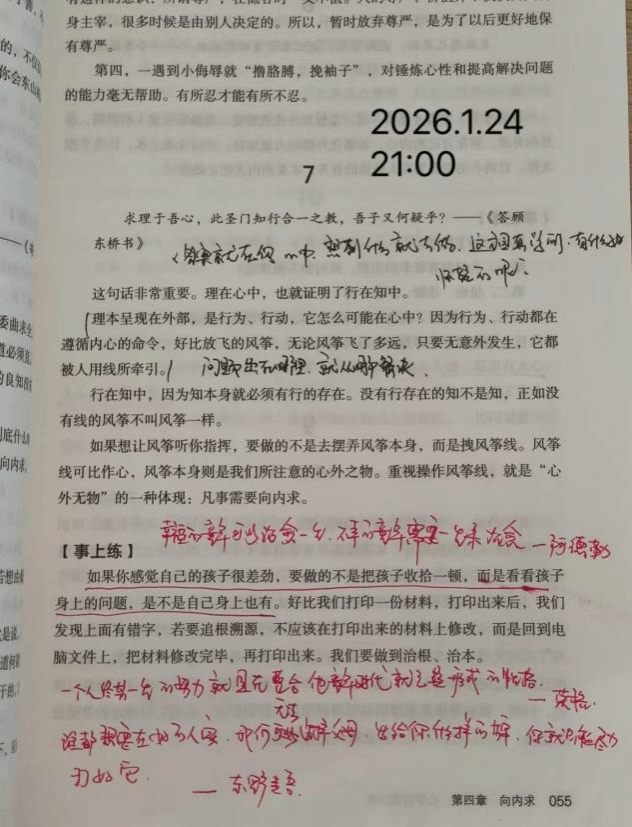 身主宰，很多时候是由别人决定的。所以，暂时放弃尊严，是为了以后更好地保
有尊严。
第四，一遇到小侮辱就“撸胳膊，挽袖子”，对锤炼心性和提高解决问题
的能力毫无帮助。有所忍才能有所不忍。
2026.1.24
21:00
7
求理于吾心，此圣门知行合一之教，吾子又何疑乎？——《答顾
东桥书》
答案就在你心中，想到什么就去做，这门真学问，有什么好
怀疑的呢？
这句话非常重要。理在心中，也就证明了行在知中。
理本呈现在外部，是行为、行动，它怎么可能在心中？因为行为、行动都在
遵循内心的命令，好比放飞的风筝，无论风筝飞了多远，只要无意外发生，它都
被人用线所牵引。
问题出在哪里，就从哪解决
行在知中，因为知本身就必须有行的存在。没有行存在的知不是知，正如没
有线的风筝不叫风筝一样。
如果想让风筝听你指挥，要做的不是去摆弄风筝本身，而是拽风筝线。风筝
线可比作心，风筝本身则是我们所注意的心外之物。重视操作风筝线，就是“心
外无物”的一种体现：凡事需要向内求。
幸福的童年可以治愈一生，不幸的童年需要一生来治愈 —阿德勒
【事上练】
如果你感觉自己的孩子很差劲，要做的不是把孩子收拾一顿，而是看看孩子
身上的问题，是不是自己身上也有。好比我们打印一份材料，打印出来后，我们
发现上面有错字，若要追根溯源，不应该在打印出来的材料上修改，而是回到电
脑文件上，把材料修改完毕，再打印出来。我们要做到治根、治本。
一个人终其一生的努力就是在整合他童年时代就已经形成的性格。
—荣格
谁都想要生在好的人家，却无法选择父母，发给你什么样的牌，你就只能尽力
打好它。
—东野圭吾
第四章 向内求 055